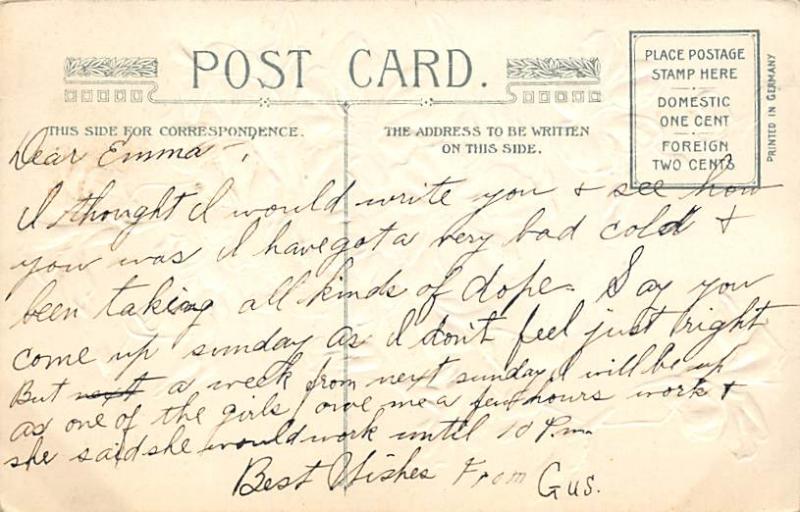 POST CARD.
PLACE POSTAGE
STAMP HERE
DOMESTIC
ONE CENT
FOREIGN
TWO CENTS
PRINTED IN GERMANY
THIS SIDE FOR CORRESPONDENCE.
THE ADDRESS TO BE WRITTEN
ON THIS SIDE.
Dear Emma -,
I thought I would write you + see how
you was I have got a very bad cold +
been taking all kinds of dope. Say you
come up sunday as I don't feel just right
But next a week from next sunday I will be up
as one of the girls owe me a few hours work +
she said she would work until 10 P.m.
Best Wishes From Gus.